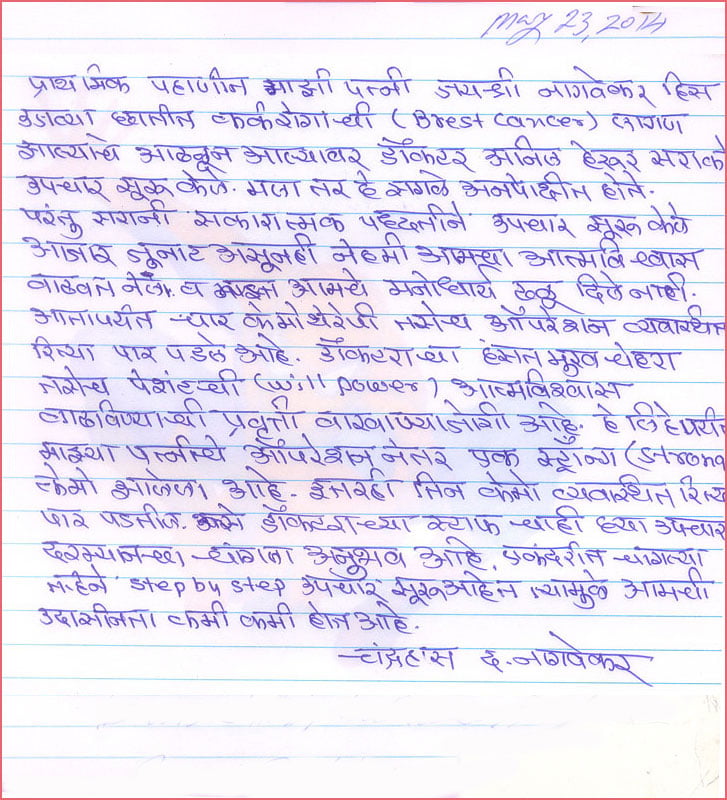 May 23, 2014
प्राथमिक पहाणीत माझी पत्नी जयश्री नागवेकर हिस
उजव्या छातीत कर्करोगाची (Brest cancer) लागण
आल्याचे आढळून आल्यावर डॉक्टर अनिल हेरूर सरांकडे
उपचार सूरू केले. मला तर हे सगळे अनपेक्षीत होते.
परंतु सरांनी सकारात्मक पध्दतीने उपचार सूरू केले
आजार दुनाट असूनही नेहमी आमचा आत्मविश्वास
वाढवत नेला. व आमचे मनोधैर्य ढळू दिले नाही.
आतापर्यंत चार केमोथेरेपी तसेच ऑपरेशन व्यवास्थित
रित्या पार पडले आहे. डॉक्टरांचा हंसत मूख चेहरा
तसेच पेशंटची (will power) आत्मविश्वास
वाढविण्याची प्रवृत्ती वाखाण्याजोगी आहे. हे लिहेपर्यंत
माझ्या पत्नीचे ऑपरेशन नंतर एक स्ट्रान्ग (strong
केमो झालेला आहे. इतरही तिन केमो व्यवास्थित रित्या
पार पडतील. डॉक्टरांच्या स्टाफ चाही ह्या उपचार
दरम्यानचा चांगला अनुभव आहे. एकंदरीत चांगल्या
तर्‍हेने step by step उपचार सूरू आहेत त्यामुळे आमची
उदासीनता कमी कमी होत आहे.
चंद्रहास द. नागवेकर